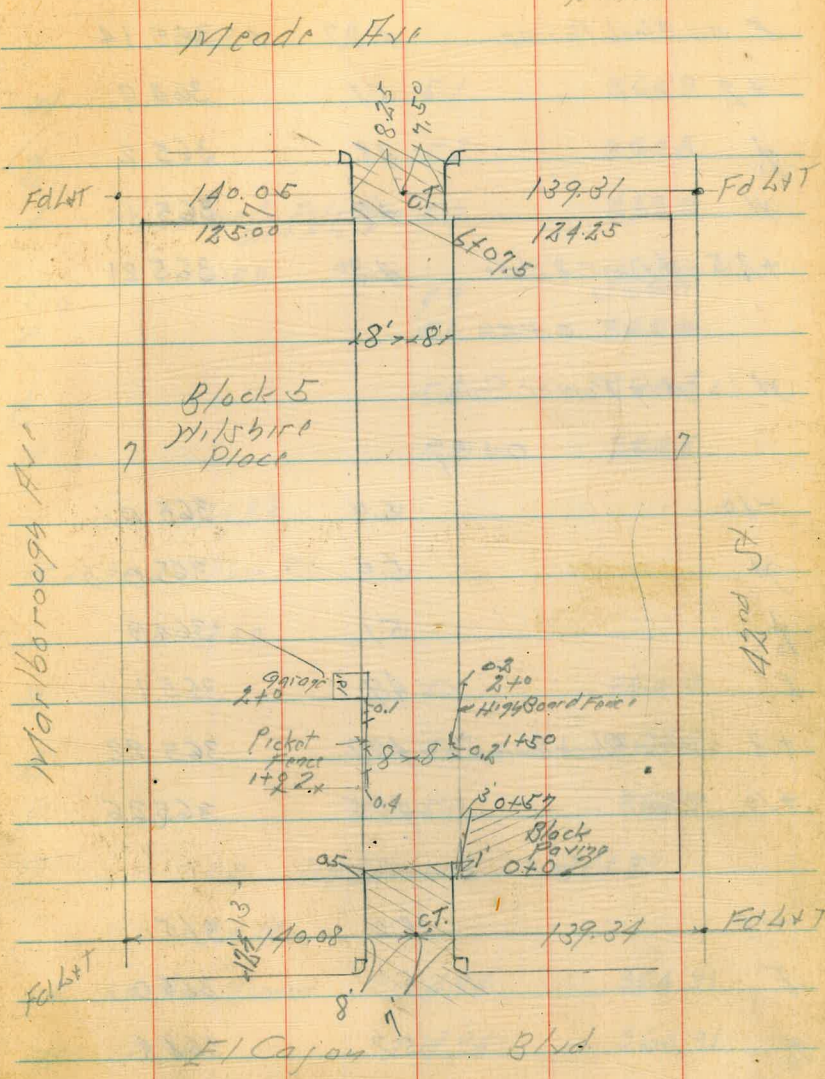 Meade Ave
18.25 7.50
Fd L+T 140.05 C.T. 139.31 Fd L+T
7
125.00 124.25
6+07.5
8' 8'
Block 5
Wilshire
Place
7 7
Marlborough Ave
42nd St.
garage 10'
2+0
0.2
2+0
High Board Fence
0.1
Picket
Fence
8 8 0.2 1+50
1+22
0.4
3' 0+57
Block
Paving
0.5 1'
0+0
C.T.
140.08 139.34 Fd L+T
Fd L+T
8' 7'
El Cajon Blvd